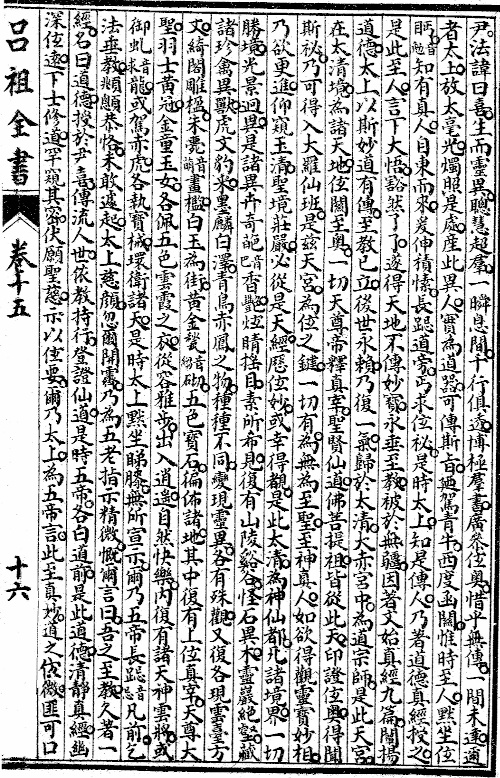 尹。法諱曰喜。生而靈異。聰慧超羣。一瞬息間。十行俱透。博極羣書。廣叅位奧。惜乎無傳。一間未達。適
者太上放大毫光。燭照是處。産此異人。實為道器。可傳斯旨。廼駕青牛。西度函關。惟時至人。點坐位
眄音勉知有真人。自東而來。爰伸積愫。長跽道旁。丐求位秘。是時太上。知是傳人。乃著道德真經授之。
是此至人。言下大悟。豁然了了。遂得天地不傳妙寶。永垂至教。被於無疆。因著文始真經九篇。闡揚
道德。太上以斯妙道有傳。至教已立。後世永賴。乃復一氣歸於太清大赤宮中。為道宗師。是此天宮
在太清境。為諸天地位關至奧。一切天尊帝釋真宰。聖賢仙道佛菩提祖。皆從此天。印證位奧。得聞
斯祕。乃可得入大羅仙班。是兹天宮。為位之鍵。一切有為無為。至聖至神真人。如欲得觀靈寶妙相。
乃欲更進仰窺玉清聖境莊嚴。必從是天。經歷位妙。或幸得覩。是此太清。為神仙都。凡諸境界。一切
勝境。光景迥異。是諸異卉奇葩音巴香艷炫睛。揺目素所布見。復有山陵谿谷。怪石異木。靈巖絕壑。藏
諸珍禽異獸。虎文豹采。墨麟白澤。青鳥赤鳳之物。種種不同。變現靈異。各有殊觀。又復各現雲臺方
丈。綺閣雕楹。朱甍音萌畫檻。白玉為街。黃金甃音縐砌。五色寶石。徧佈諸地。其中復有上位真宰。天尊大
聖。羽士黃冠。金童玉女。各佩五色雲霞之衣。從容雅步。出入逍遥。自然快樂。內復有諸天神雲將。或
御虬音求龍。或駕赤虎。各執寶械。環衛諸天。是時太上點坐睇睞。無所宣示。爾乃五帝長跽音忌凡前。乞
法垂教。頫顱恭恪。未敢遽起。太上慈顔。忽爾開霽。乃為五老指示精微。慨爾言曰。吾之至教。久著一
經。名曰道德。授於尹喜。傳流人世。依教持行。登證仙道。是時五帝。各白道前。是此道德清靜真經。幽
深位遠。下士修道。罕窺其窾。伏願聖慈。示以位要。爾乃太上。為五帝言。此至真妙道之位微。匪可口
呂祖全書
卷十五
十六